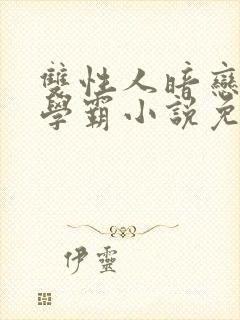 雙性人暗戀
學霸小說免
伊靈